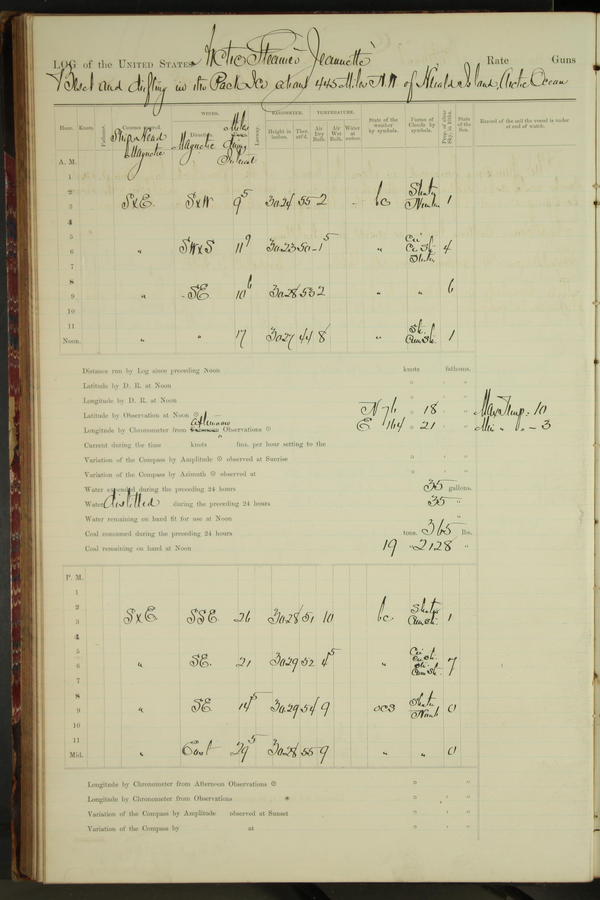 LOG of the UNITED STATES Arctic Steamer "Jeannette" Rate Guns
Beset and drifting in the Pack Ice about 445 Miles N.W. of Herald Island, Arctic Ocean
WINDS. BAROMETER. TEMPERATURE.
Hour. Knots. Fathoms. Courses steered. Direction. Leeway. Height in inches. Ther. att'd. Air Dry Bulb. Air Wet Bulb. Water at surface. State of the weather by symbols. Forms of Clouds by symbols. Prop. of clear Sky, in 10ths. State of the Sea. Record of the sail the vessel is under at end of watch.
Ship's Head Magnetic Magnetic Miles during Interval
A. M.
1
2
3 S x E. S x W 9 5 30.24 55 2 bc Stratus Nimbus 1
4
5
6 " SW x S 11 9 30.23 50 -1 5 " Cir. Cir. St. Stratus 4
7
8
9 " SE 10 6 30.28 53 2 " " 6
10
11
Noon. " " 17 30.27 44 8 " St. Cum. St. 1
Distance run by Log since preceding Noon knots fathoms.
Latitude by D. R. at Noon ° ' "
Longitude by D. R. at Noon ° ' "
Latitude by Observation at Noon N 76 ° 18 ' " Max Temp. 10
Longitude by Chronometer from afternoon Observations E 164 ° 21 ' " Min " - 3
Current during the time knots fms. per hour setting to the
Variation of the Compass by Amplitude observed at Sunrise ° ' "
Variation of the Compass by Azimuth observed at ° ' "
Water expended during the preceding 24 hours 35 gallons.
Water distilled during the preceding 24 hours 35 "
Water remaining on hand fit for use at Noon "
Coal consumed during the preceding 24 hours tons. 365 lbs.
Coal remaining on hand at Noon 19 " 2128 "
P. M.
1
2
3 S x E. SSE. 26 30.28 51 10 bc Stratus Cum. St. 1
4
5
6 " SE. 21 30.29 52 4 5 " Cir. Cir. St. Cum. St. 7
7
8
9 " SE. 14 5 30.29 54 9 ocs Stratus Nimb 0
10
11
Mid. " East 29 5 30.28 55 9 " " 0
Longitude by Chronometer from Afternoon Observations ° "
Longitude by Chronometer from Observations * ° ' "
Variation of the Compass by Amplitude observed at Sunset ° ' "
Variation of the Compass by at ° ' "